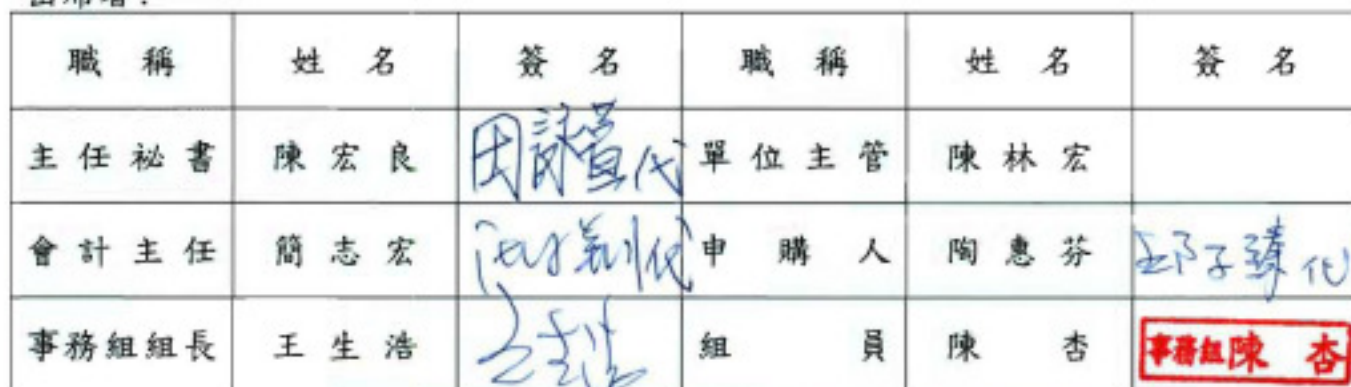 出席者：
職稱 姓名 簽名 職稱 姓名 簽名
主任祕書 陳宏良 代 單位主管 陳林宏
會計主任 簡志宏 代 申購人 陶惠芬 邱子臻代
事務組組長 王生浩 王生浩 組員 陳杏 事務組陳杏